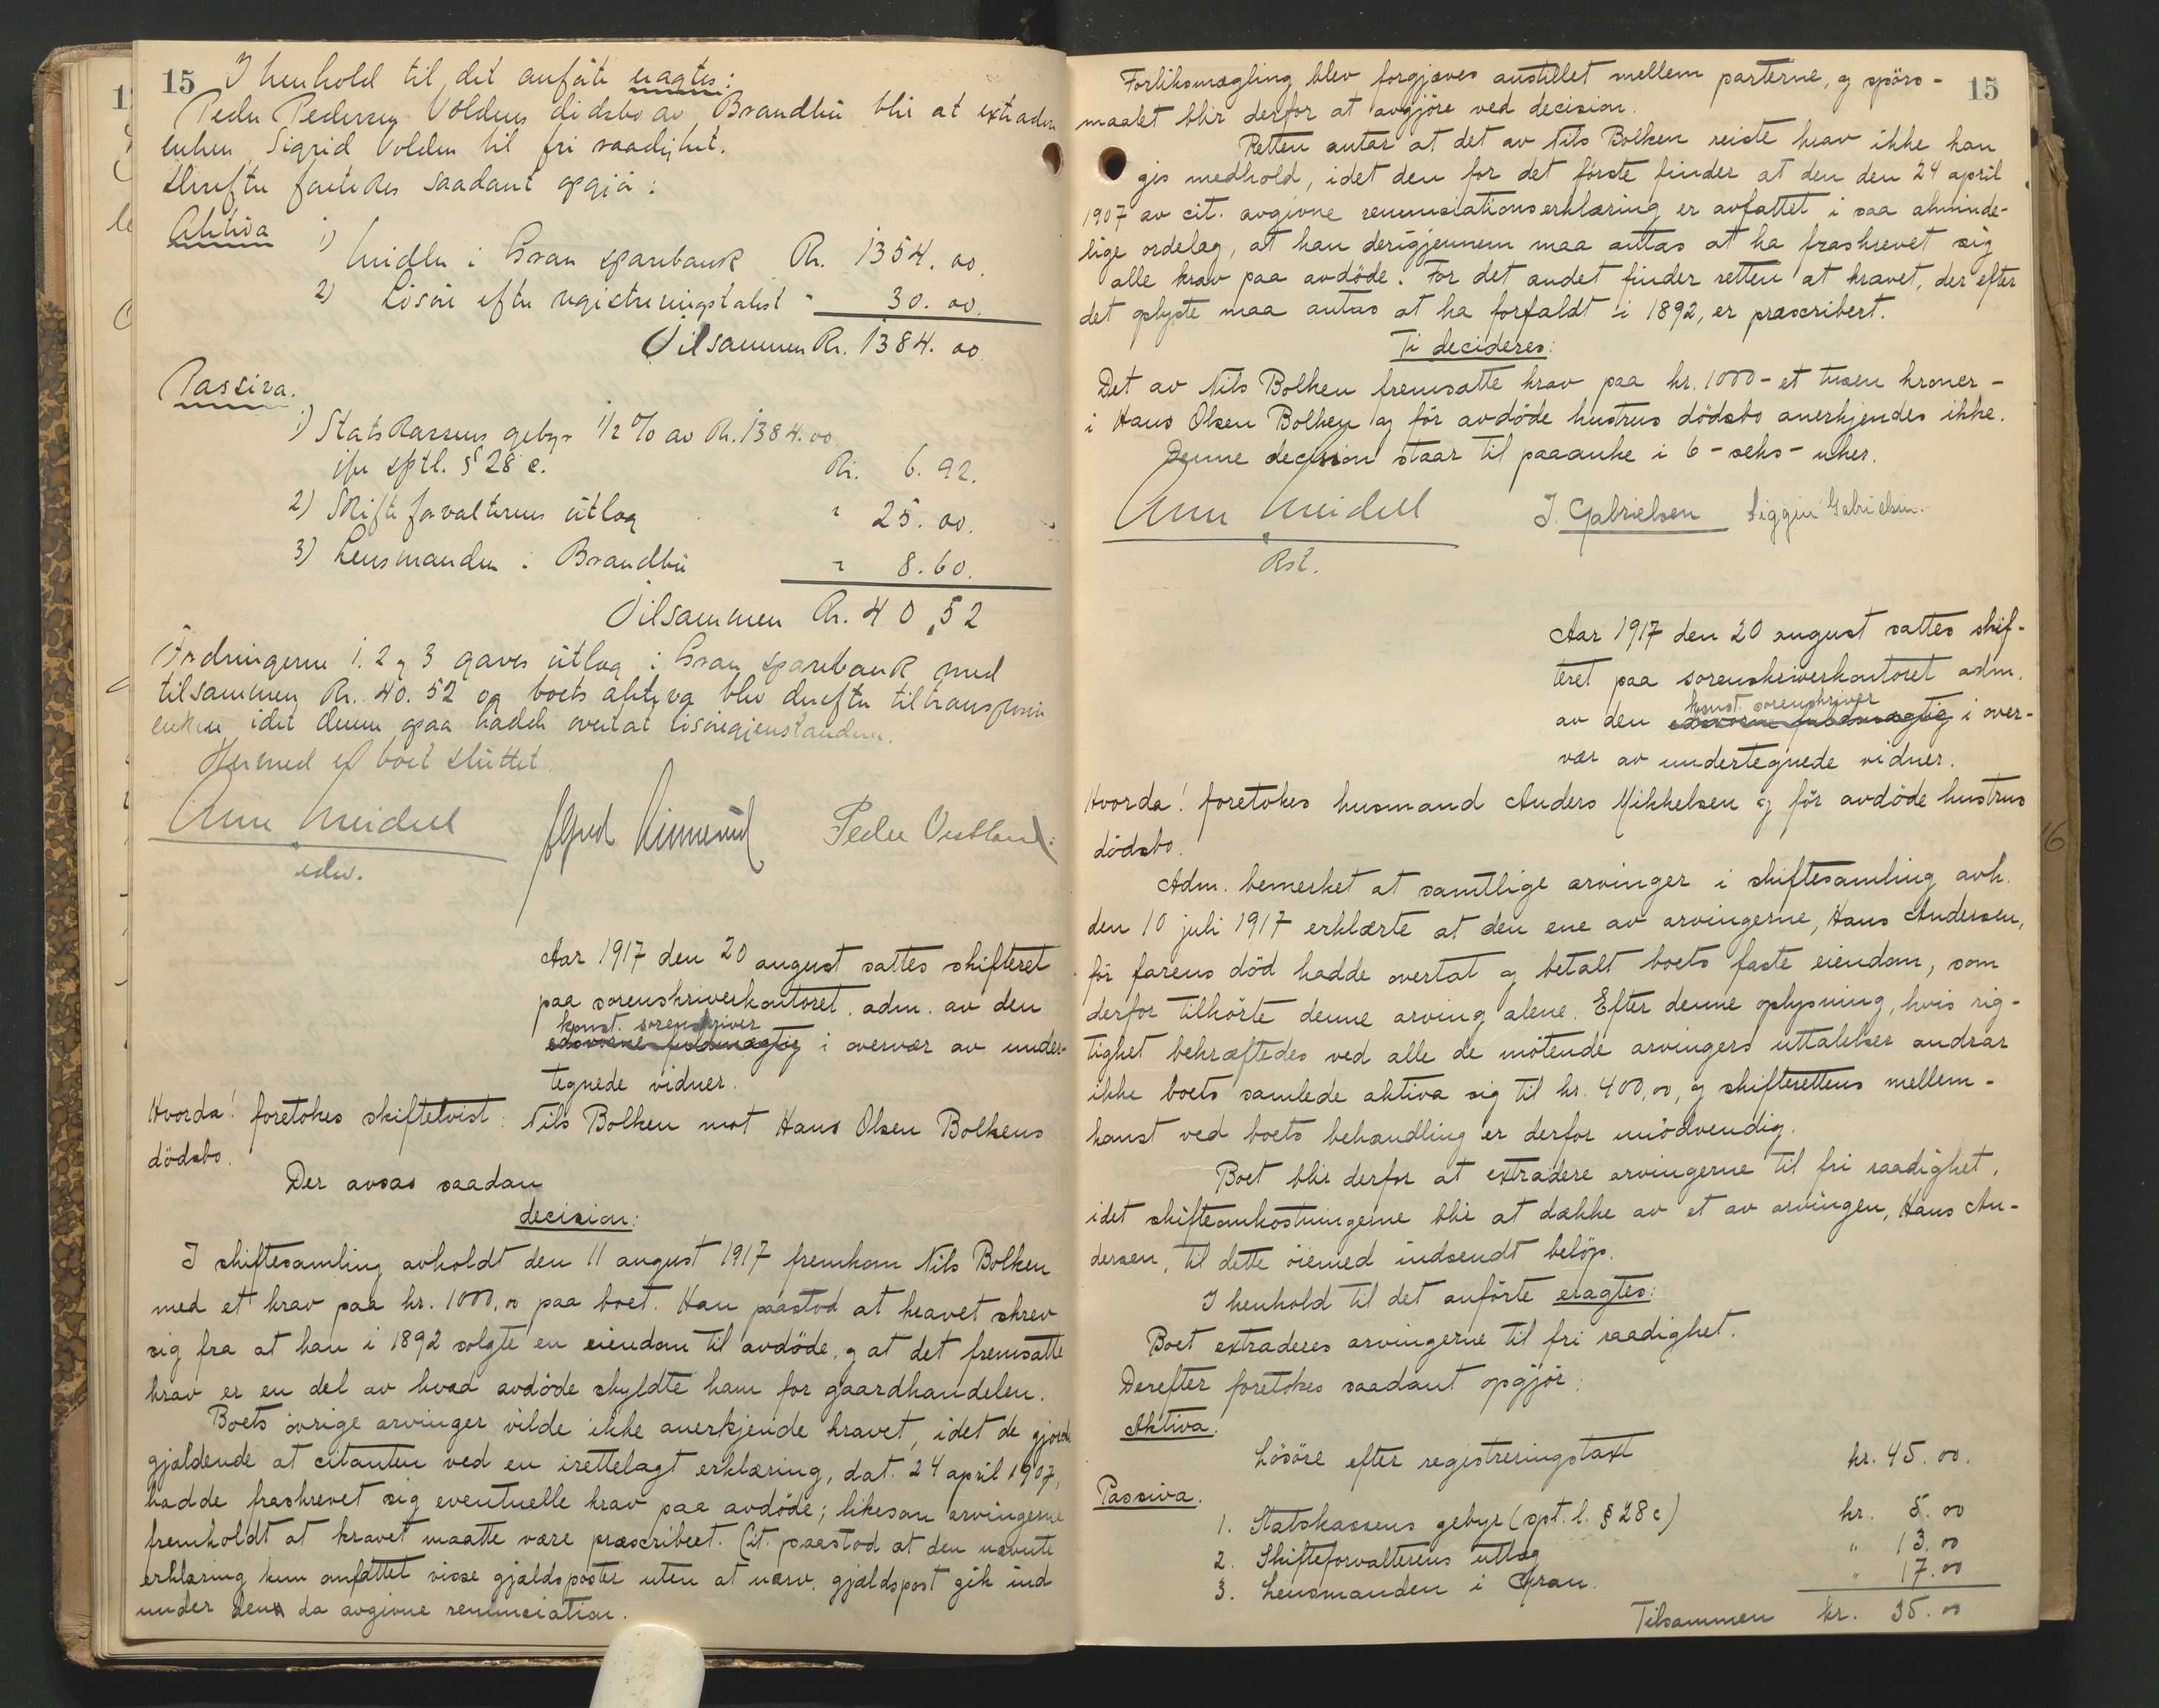 15
I henhold til det anførte eragtes:
Peder Pedersen Voldens dødsbo av Brandbu blir at extradere
enken Sigrid Volden til fri raadighet.
Derefter foretokes saadant opgjør:
Aktiva
1) Midler i Gran sparebank Kr. 1354.00.
2) Løsøre efter registreringstakst " 30.00.
Tilsammen Kr. 1384.00
Passiva.
1) Statskassens gebyr 1/2 % av Kr. 1384.00
ifr sptl. § 28 c. Kr. 6.92.
2) Skifteforvalterens utlæg " 25.00.
3) Lensmanden i Brandbu " 8.60.
Tilsammen Kr. 40.52
Fordringerne 1. 2 og 3 gaves utlæg i Gran sparebank med
tilsammen Kr. 40.52 og boets aktiva blev derefter
enken idet denne hadde overtat løsøregjenstandene.
Hermed er boet sluttet.
edsv.
Aar 1917 den 20 august sattes skifteret
paa sorenskriverkontoret, adm. av den
konst. sorenskriver
edsvorne fuldmægtig i overvær av under-
tegnede vidner.
Hvorda! foretokes skiftetvist: Nils Bolken mot Hans Olsen Bolkens
dödsbo.
Der avsas saadan
decision:
I skiftesamling avholdt den 11 august 1917 fremkom Nils Bolken
med et krav paa kr. 1000,00 paa boet. Han paastod at kravet skrev
sig fra at han i 1892 solgte en eiendom til avdöde, og at det fremsatte
krav er en del av hvad avdöde skyldte ham for gaardhandelen.
Boets övrige arvinger vilde ikke anerkjende kravet, idet de gjorde
gjældende at citanten ved en irettelagt erklæring, dat. 24 april 1907,
hadde fraskrevet sig eventuelle krav paa avdöde; likesom arvingerne
fremholdt at kravet maatte være præscribert. Cit. paastod at den nævnte
erklæring kun omfattet visse gjældsposter uten at nærv. gjældspost gik ind
under den da avgivne renunciation.
15
Forliksmægling blev forgjæves anstillet mellem parterne, og spörs-
maalet blir derfor at avgjöre ved decision.
Retten antar at det av Nils Bolken reiste krav ikke kan
gis medhold, idet den for det förste finder at den den 24 april
1907 av cit. avgivne renunciationserklæring er avfattet i saa alminde-
lige ordelag, at han derigjennem maa antas at ha fraskrevet sig
alle krav paa avdöde. For det andet finder retten at kravet, der efter
det oplyste maa antas at ha forfaldt i 1892, er præscribert.
Ti decideres:
Det av Nils Bolken fremsatte krav paa kr. 1000 - et tusen kroner -
i Hans Olsen Bolken og för avdöde hustrus dödsbo anerkjendes ikke.
Denne decision staar til paaanke i 6 - seks - uker.
J. Gabrielsen Siggen Gabrielsen.
Kst.
Aar 1917 den 20 august sattes skif-
teret paa sorenskriverkontoret adm.
konst. sorenskriver
av den edsvorne fuldmægtig i over-
vær av undertegnede vidner.
Hvorda! foretokes husmand Anders Mikkelsen og för avdöde hustrus
dödsbo.
Adm. bemerket at samtlige arvinger i skiftesamling avh.
den 10 juli 1917 erklærte at den ene av arvingerne, Hans Andersen,
för farens död hadde overtat og betalt boets faste eiendom, som
derfor tilhörte denne arving alene. Efter denne oplysning, hvis rig-
tighet bekræftedes ved alle de mötende arvingers uttalelser andrar
ikke boets samlede aktiva sig til kr. 400,00, og skifterettens mellem-
komst ved boets behandling er derfor unödvendig.
Boet blir derfor at extradere arvingerne til fri raadighet,
idet skifteomkostningerne blir at dække av et av arvingen, Hans An-
dersen, til dette öiemed indsendt belöp.
I henhold til det anförte eragtes:
Boet extraderes arvingerne til fri raadighet.
Derefter foretokes saadant opgjör:
Aktiva.
Lösöre efter registreringstaxt kr. 45.00.
Passiva.
1. Statskassens gebyr (spt. l. § 28 c) kr. 5.00
2. Skifteforvalterens utlæg " 13.00
3. Lensmanden i Gran. " 17.00
Tilsammen kr. 35.00
16